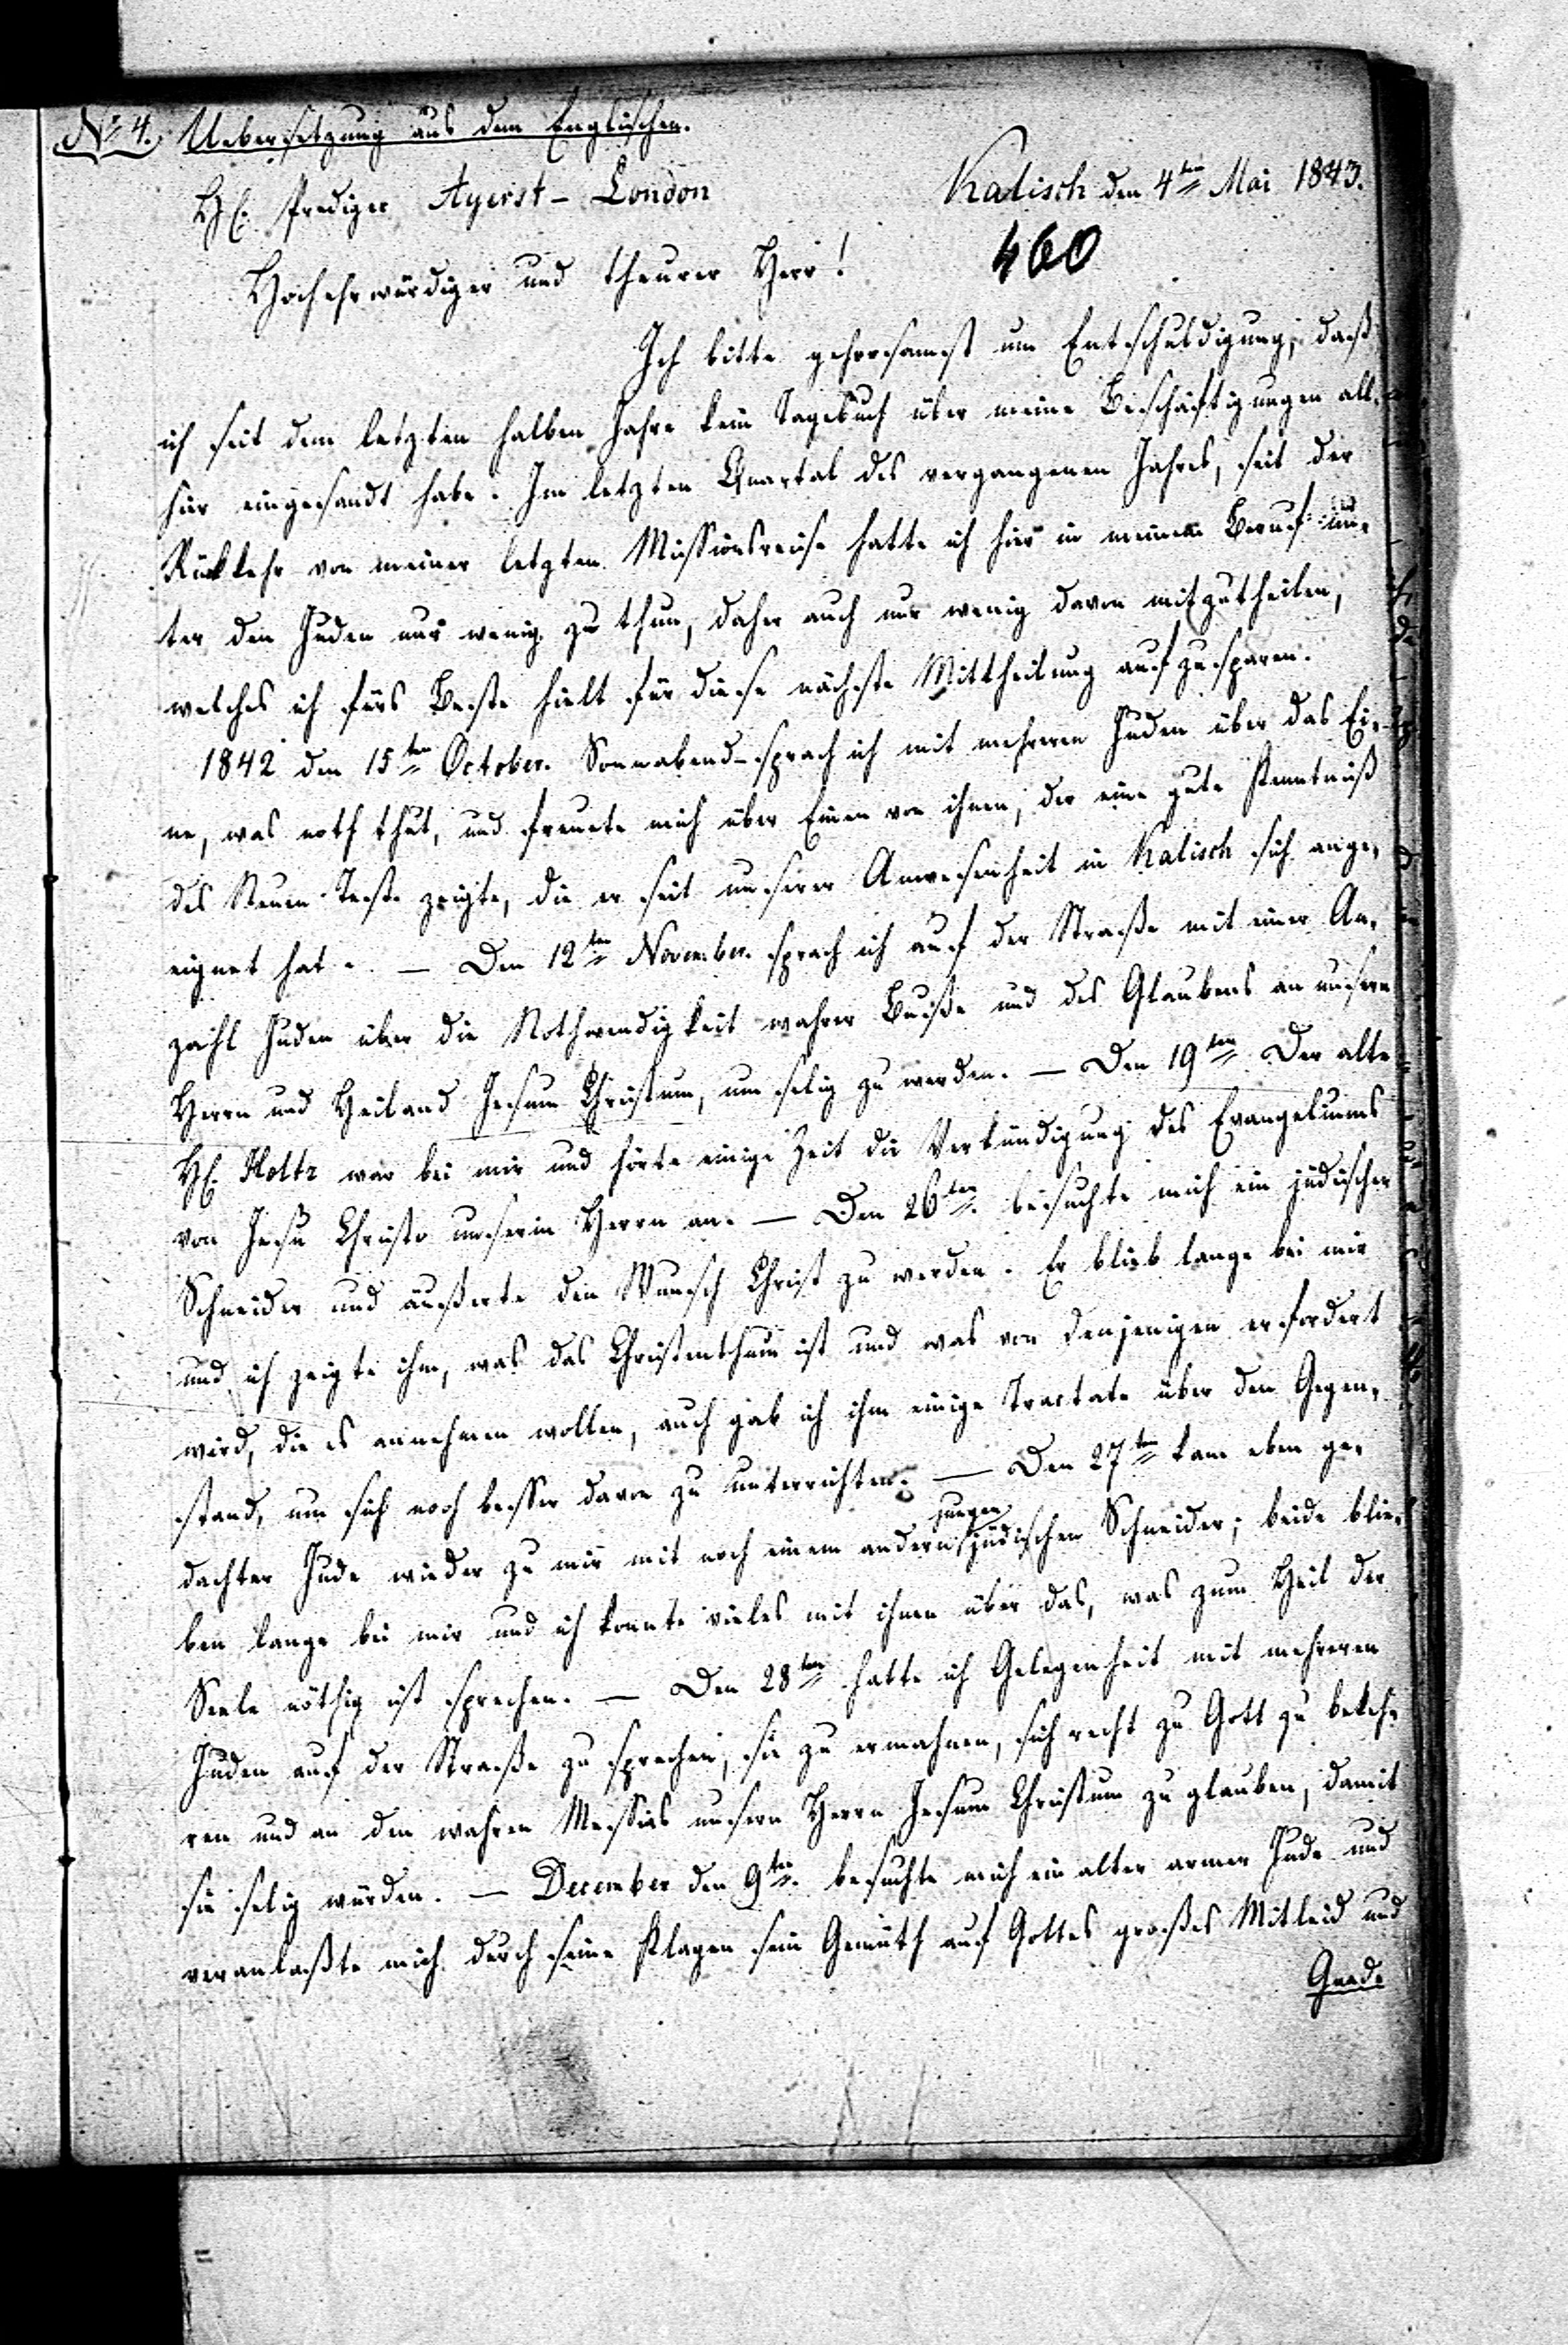 No 4. Uebersetzung aus dem Englischen.
H. Prediger Ayerst - London
Kalisch den 4ten Mai 1843.
460
Hochehrwürdiger und theurer Herr!
Ich bitte gehorsamst um Entschuldigung, daß
ich seit dem letzten halben Jahre kein Tagebuch über meine Beschäftigungen all-
hier eingesandt habe. Im letzten Quartal des vergangenen Jahres, seit der
Rückkehr von meiner letzten Missionsreise hatte ich hier in meinem Beruf un-
ter den Juden nur wenig zu thun, daher auch nur wenig davon mitzutheilen,
welches ich fürs Beste hielt für diese nächste Mittheilung aufzusparen.
1842 den 15ten October. Sonnabend - sprach ich mit mehreren Juden über das Ei-
ne, was noth thut, und freuete mich über Einen von ihnen, der eine gute Kenntniß
des Neuen Test. zeigte, die er seit unserer Anwesenheit in Kalisch sich ange-
eignet hat. — Den 12ten November. sprach ich auf der Straße mit einer An-
zahl Juden über die Nothwendigkeit wahrer Buße und des Glaubens an unsern
Herrn und Heiland Jesum Christum, um selig zu werden. — Den 19ten Der alte
H. Holtz war bei mir und hörte einige Zeit die Verkündigung des Evangeliums
von Jesu Christo unserm Herrn an. — Den 26ten. besuchte mich ein jüdischer
Schneider und äußerte den Wunsch Christ zu werden. Er blieb lange bei mir
und ich zeigte ihm, was das Christenthum ist und was von denjenigen erfordert
wird, die es annehmen wollen, auch gab ich ihm einige Tractate über den Gegen-
stand, um sich noch besser davon zu unterrichten. — Den 27ten kam eben ge-
dachter Jude wieder zu mir mit noch einem andern jungen jüdischen Schneider; beide blie-
ben lange bei mir und ich konnte vieles mit ihnen über das, was zum Heil der
Seele nöthig ist sprechen. — Den 28ten hatte ich Gelegenheit mit mehreren
Juden auf der Straße zu sprechen, sie zu ermahnen, sich recht zu Gott zu bekeh-
ren und an den wahren Messias unsern Herrn Jesum Christum zu glauben, damit
sie selig würden. — December den 9ten. besuchte mich ein alter armer Jude und
veranlaßte mich durch seine Klagen sein Gemüth auf Gottes großes Mitleid und
Gnade